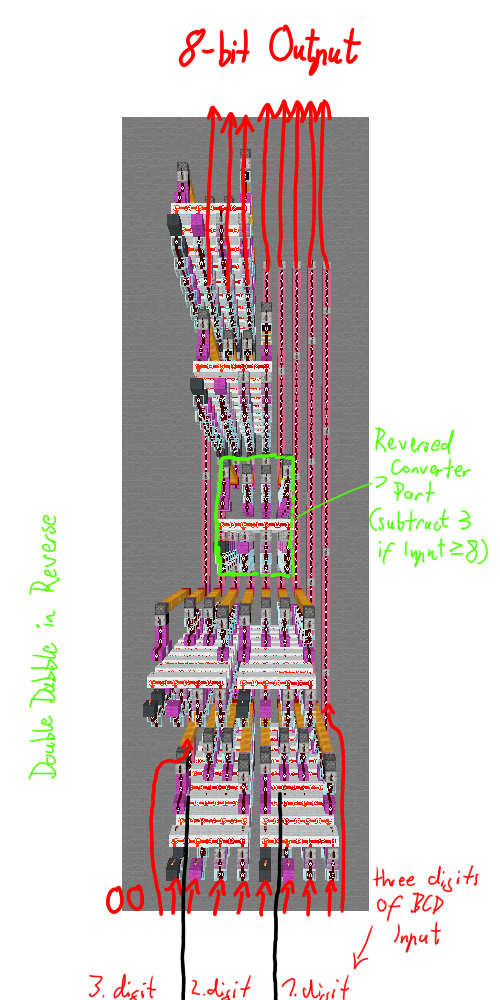 8-bit Output
Reversed
Converter
Part
(subtract 3
if Input ≥ 8)
Double Dabble in Reverse
00
three digits
of BCD
Input
3. digit 2. digit 1. digit